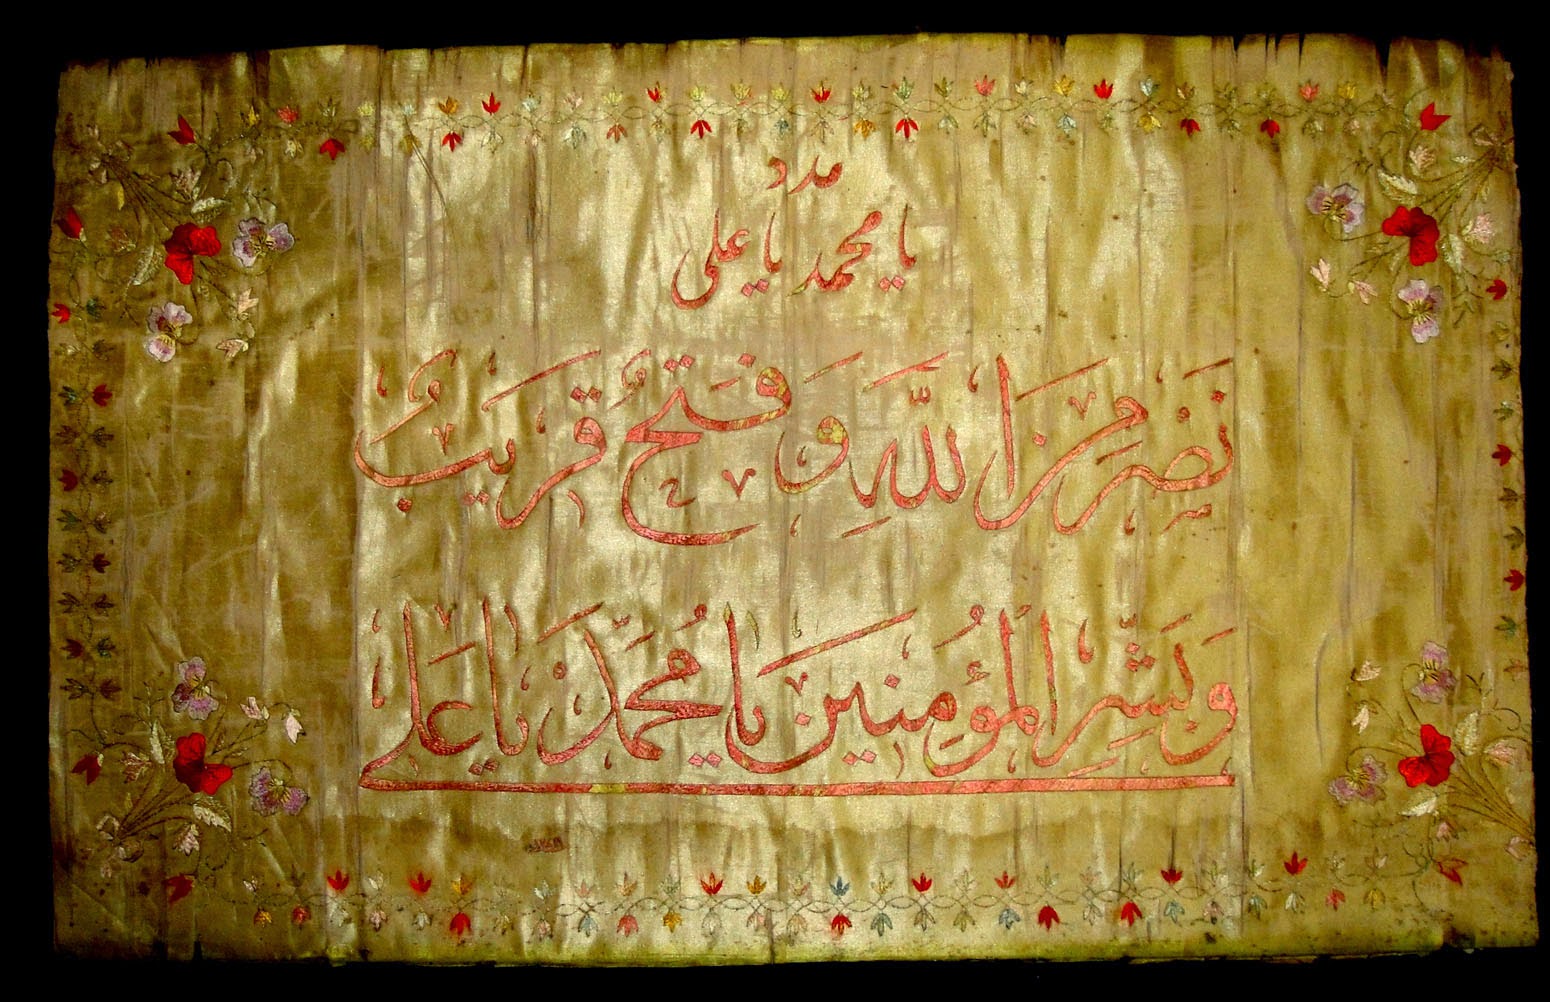 مدد
يا محمد يا علی
نَصْرٌ مِنَ اللّٰهِ وَفَتْحٌ قَرِيبٌ
وَبَشِّرِ الْمُؤْمِنِينَ يَا مُحَمَّدْ يَا عَلی